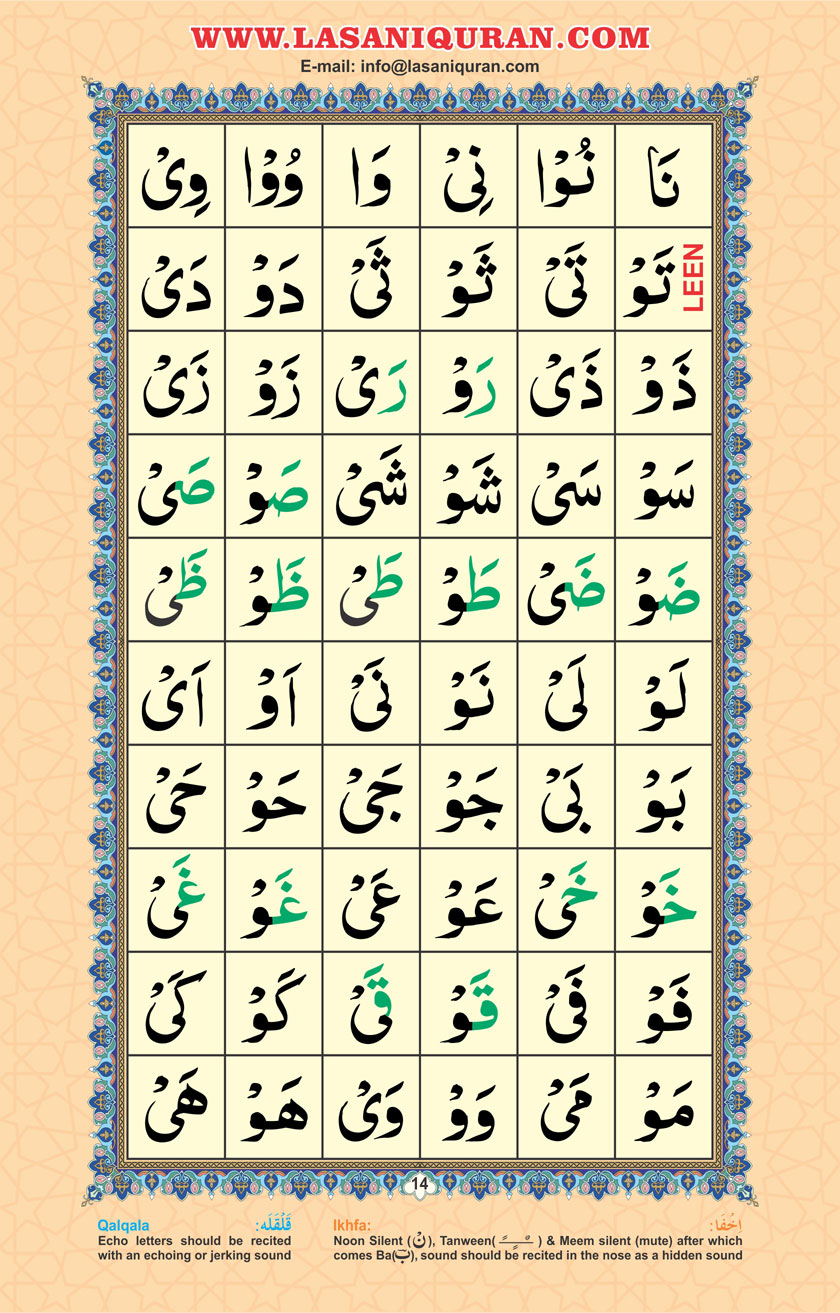 WWW.LASANIQURAN.COM
E-mail: info@lasaniquran.com
نَا نُوْا نِىْ وَا وُوْا وِىْ
LEEN تَوْ تَىْ ثَوْ ثَىْ دَوْ دَىْ
ذَوْ ذَىْ رَوْ رَىْ زَوْ زَىْ
سَوْ سَىْ شَوْ شَىْ صَوْ صَىْ
ضَوْ ضَىْ طَوْ طَىْ ظَوْ ظَىْ
لَوْ لَىْ نَوْ نَىْ اَوْ اَىْ
بَوْ بَىْ جَوْ جَىْ حَوْ حَىْ
خَوْ خَىْ عَوْ عَىْ غَوْ غَىْ
فَوْ فَىْ قَوْ قَىْ كَوْ كَىْ
مَوْ مَىْ وَوْ وَىْ هَوْ هَىْ
14
Qalqala قَلْقَلَه:
Echo letters should be recited
with an echoing or jerking sound
Ikhfa: اِخْفَا:
Noon Silent (نْ), Tanween( ـًـٍـٌ ) & Meem silent (mute) after which
comes Ba(ب), sound should be recited in the nose as a hidden sound